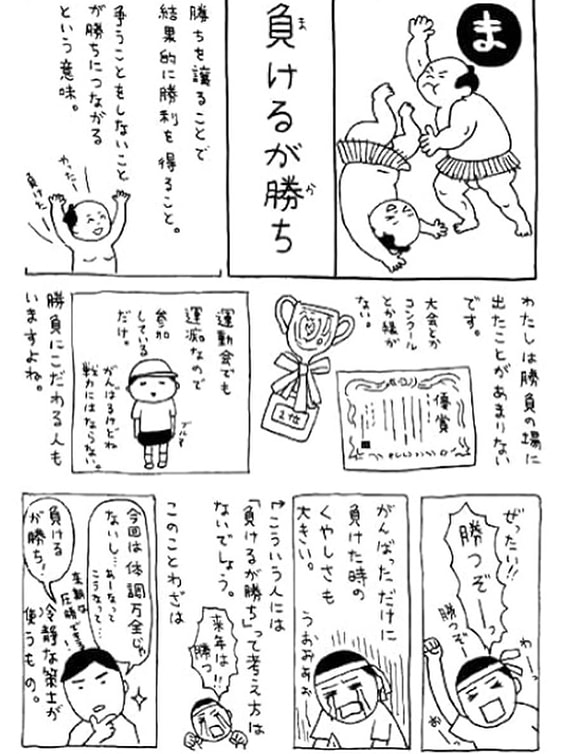 ま
負けるが勝ち
ま
か
勝ちを譲ることで
結果的に勝利を得ること。
争うことをしないこと
が勝ちにつながる
という意味。
わったー
負けたー
わたしは勝負の場に
出たことがあまりない
です。
大会とか
コンクール
とか縁が
ない。
優賞
2位
運動会でも
運痴なので
参加
している
だけ。
がんばるけどね
戦力にはならない。
ブルマ
勝負にこだわる人も
いますよね。
ぜったい!!
勝つぞーっ
勝つぞー
わーっ
がんばっただけに
負けた時の
くやしさも
大きい。
うおおおぉ
こういう人には
「負けるが勝ち」って考え方は
ないでしょう。
来年は!!
勝つ
このことわざは
今回は体調万全じゃ
ないし…あーなって
こうなって…
来期は
圧勝できる!
負ける
が勝ち!
冷静な策士が
使うもの。